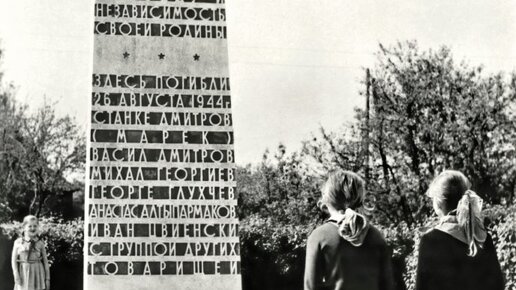 НЕЗАВИСИМОСТЬ
СВОЕЙ РОДИНЫ
* * *
ЗДЕСЬ ПОГИБЛИ
26 АВГУСТА 1944 г.
СТАНКЕ ДМИТРОВ
(МАРЕК)
ВАСИЛ ДМИТРОВ
МИХАЛ ГЕОРГИЕВ
ГЕОРГЕ ГЛУХЧЕВ
АНАСТАС АЛТЫПАРМАКОВ
ИВАН ЦВИЕНСКИ
С ГРУППОЙ ДРУГИХ
ТОВАРИЩЕЙ